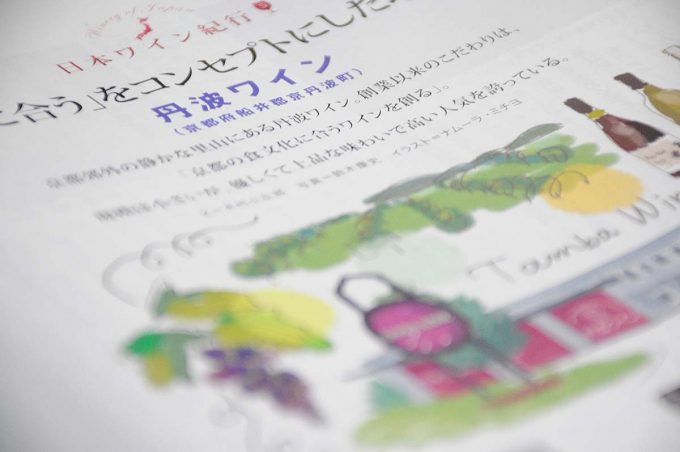 日本ワイン紀行
合う」をコンセプトにした
丹波ワイン
(京都府船井郡京丹波町)
京都郊外の静かな里山にある丹波ワイン。創業以来のこだわりは、
「京都の食文化に合うワインを創る」。
優しくて上品な味わいで高い人気を誇っている。
イラスト=ナムーラ・ミチヨ
Tamba Win